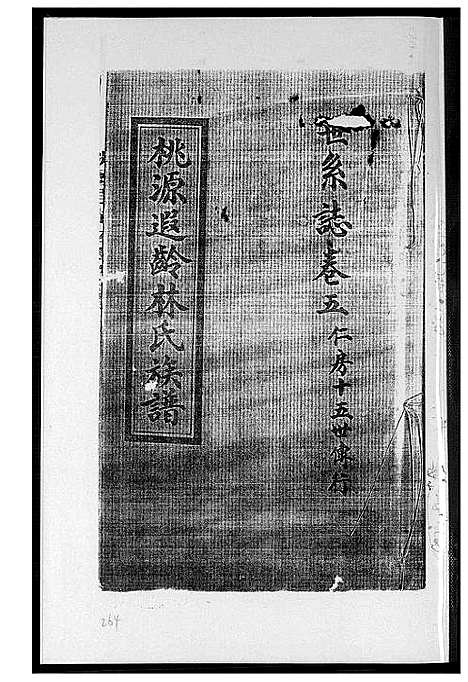 世系誌卷五 仁房十五世傳行
桃源遐齡林氏族譜
264